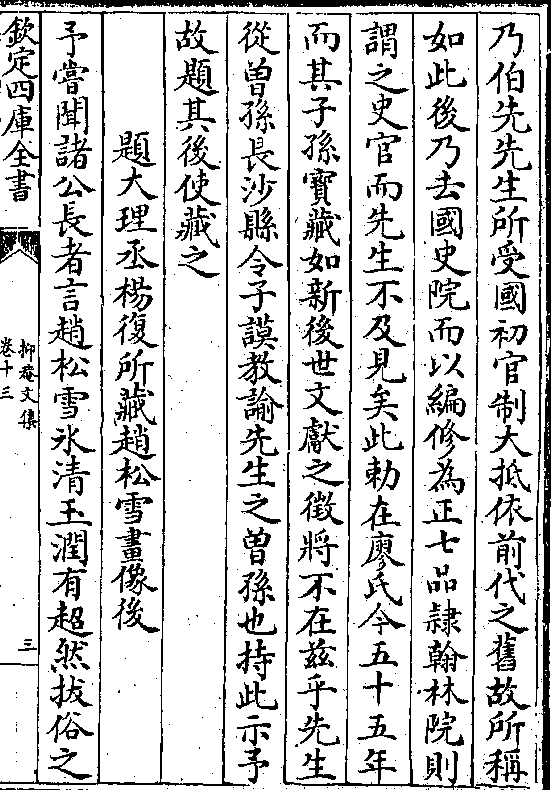 乃伯先先生所受國初官制大抵依前代之舊故所稱
如此後乃去國史院而以編修為正七品隸翰林院則
謂之史官而先生不及見矣此勅在廖氏今五十五年
而其子孫寶藏如新後世文獻之徵將不在茲乎先生
從曽孫長沙縣令子謨教諭先生之曽孫也持此示予
故題其後使藏之
題大理丞楊復所藏趙松雪畫像後
予嘗聞諸公長者言趙松雪氷清玉潤有超然拔俗之
欽定四庫全書
抑菴文集
卷十三
三